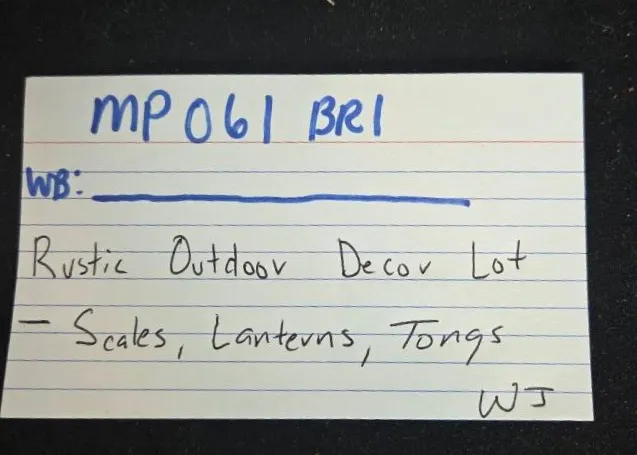 MP061 BR1
WB:
Rustic Outdoor Decor Lot
- Scales, Lanterns, Tongs
WJ